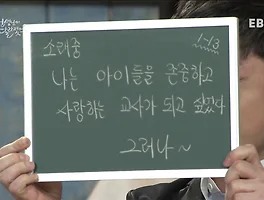 EB
소래중
1-13
나는 아이들을 존중하고
사랑하는 교사가 되고 싶었다
그러나~